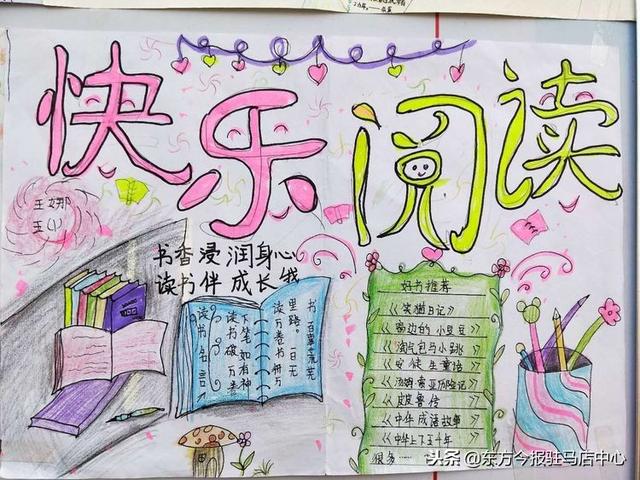 快乐阅读
王娜
五(1)
书香浸润身心
读书伴成长
读书名言:
读书破万卷
下笔如有神
读万卷书行万
里路。一日无
书,百事荒芜
好书推荐
《笑猫日记》
《窗边的小豆豆》
《淘气包马小跳》
《安徒生童话》
《汤姆索亚历险记》
《皮皮鲁传》
《中华成语故事》
《中华上下五千年》
很多……
头条 @东方今报驻马店中心